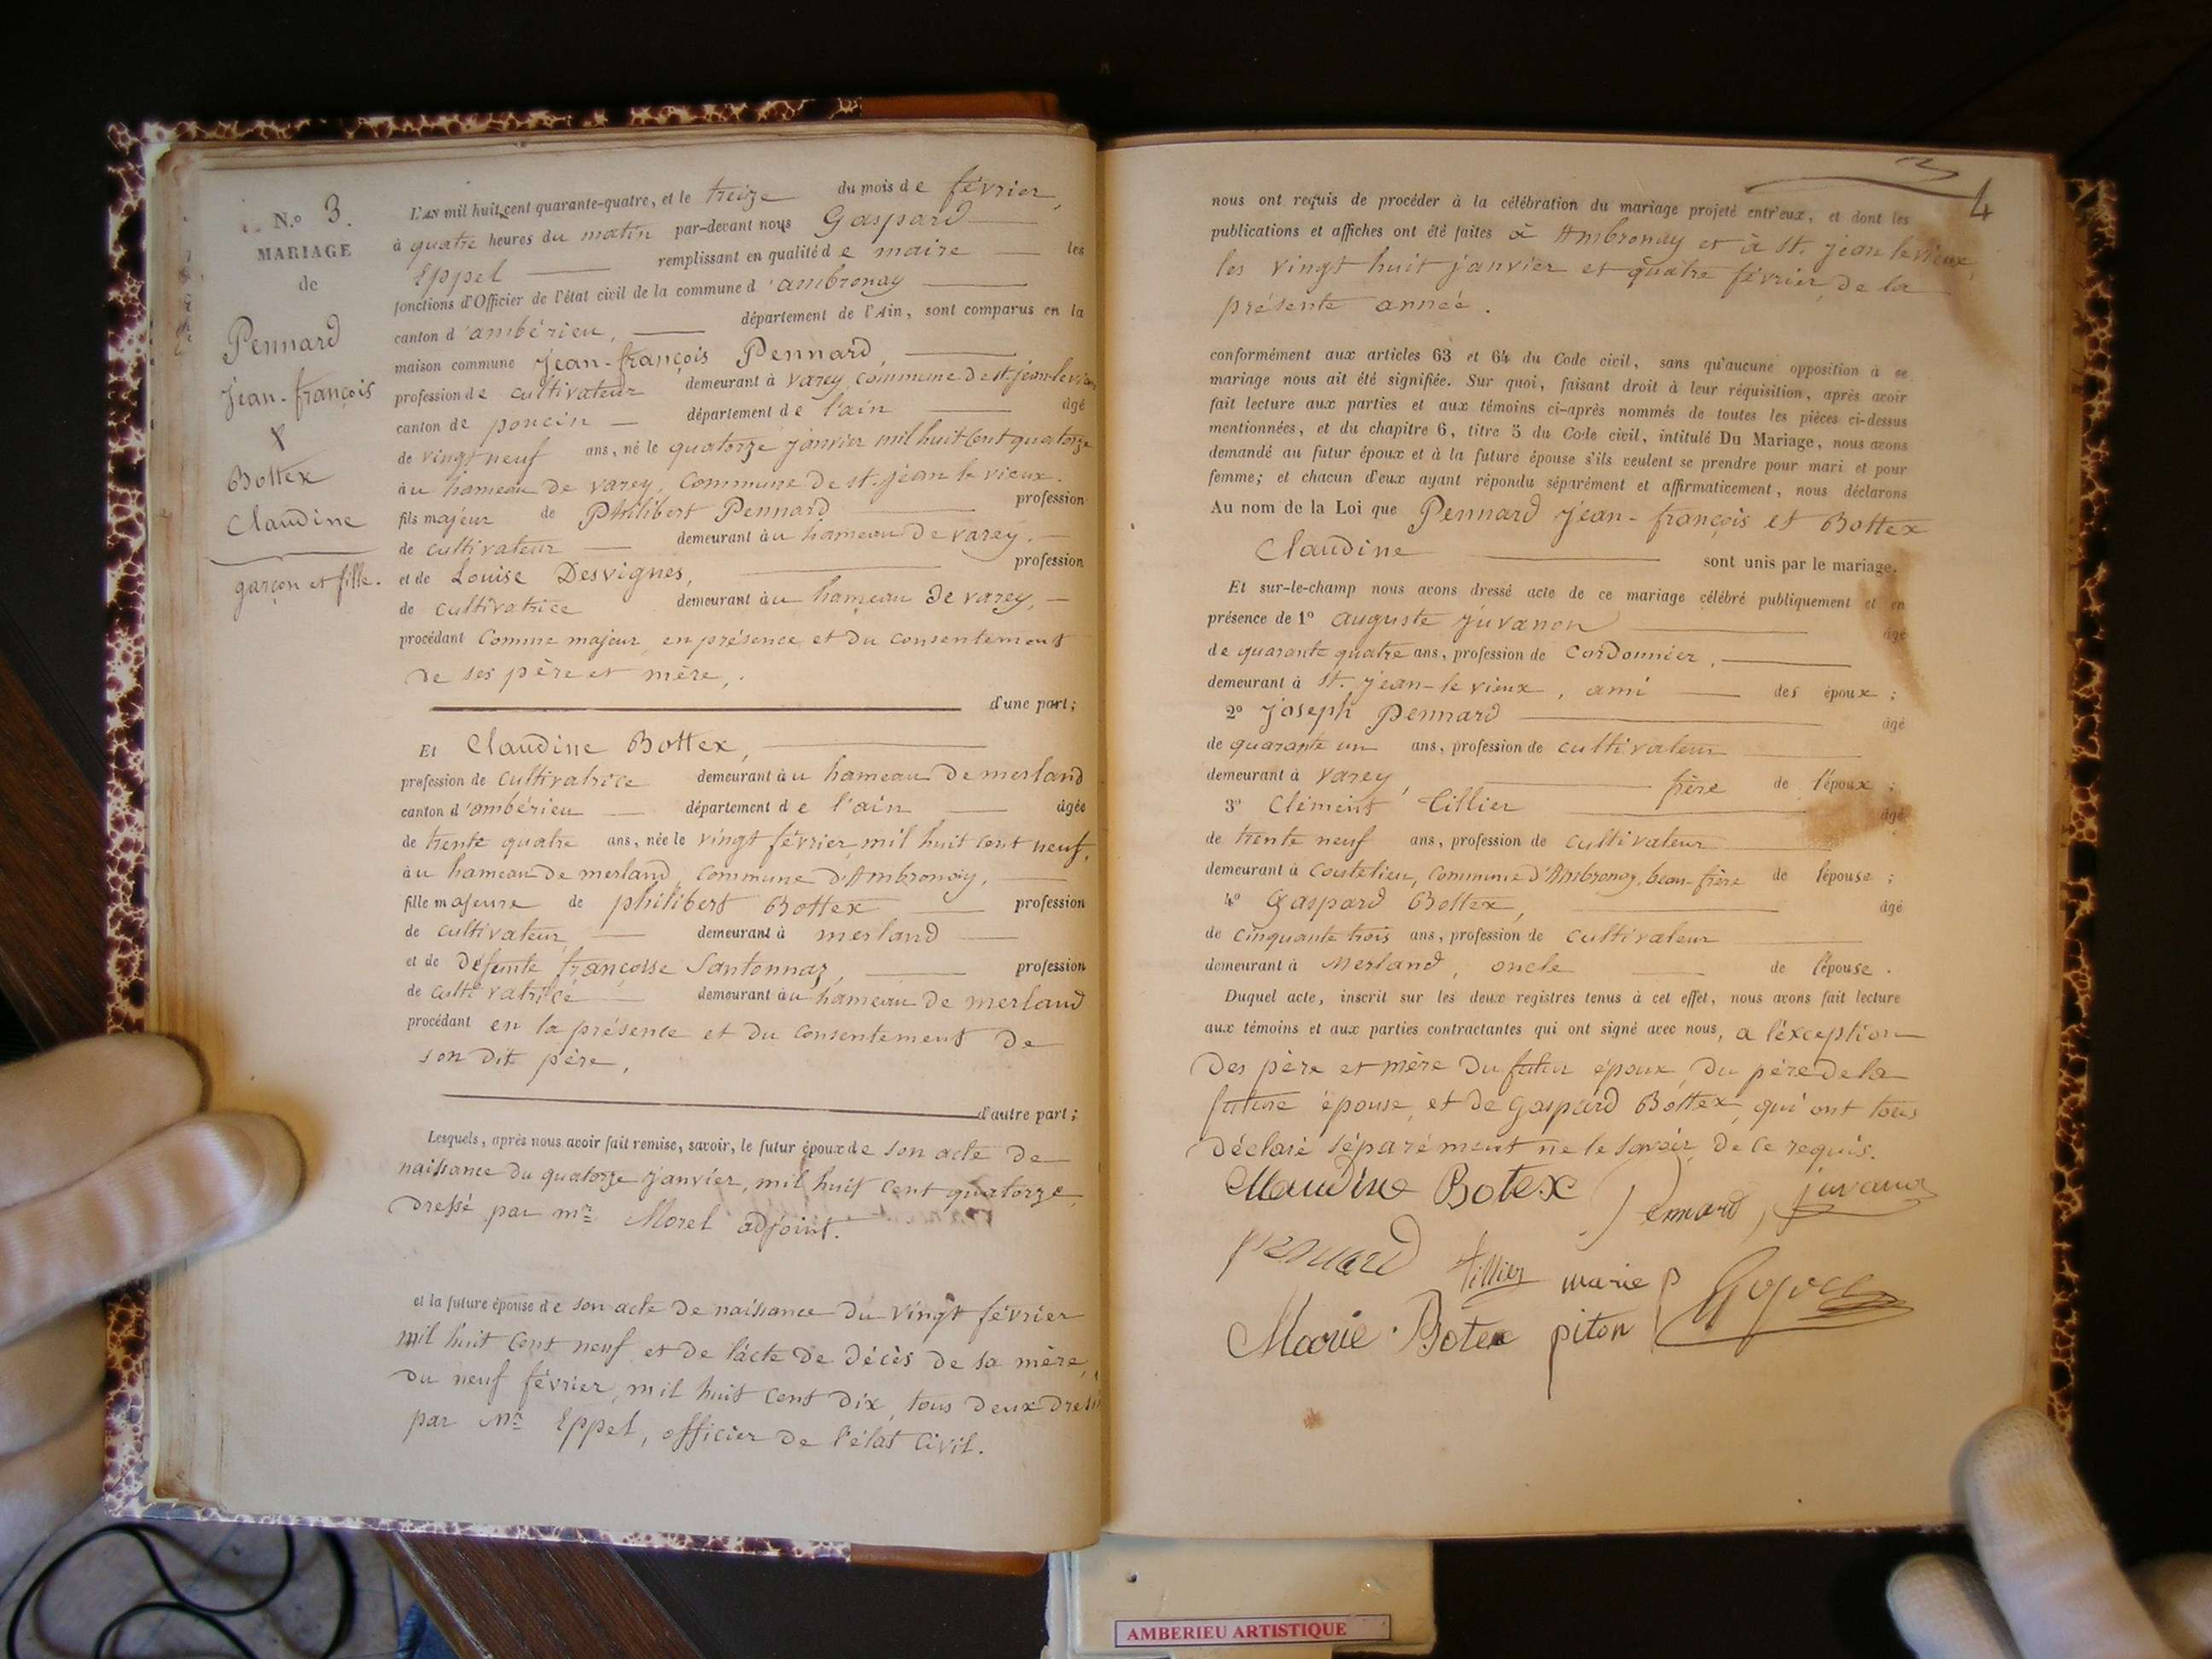 N.o 3.
MARIAGE
de
Pennard
Jean-françois
&
Bottex
Claudine
garçon et fille.
L'an mil huit cent quarante-quatre, et le treize du mois de février,
à quatre heures du matin par-devant nous Gaspard
Eppel remplissant en qualité de maire les
fonctions d'Officier de l'état civil de la commune d'ambronay
canton d'ambérieu, département de l'Ain, sont comparus en la
maison commune Jean-françois Pennard,
profession de cultivateur demeurant à varey, commune de st. jean-le vieux
canton de poncin département de l'ain âgé
de vingt neuf ans, né le quatorze janvier mil huit cent quatorze
au hameau de varey, commune de st. jean le vieux.
fils majeur de Philibert Pennard profession
de cultivateur demeurant au hameau de varey.
et de Louise Desvignes, profession
de cultivatrice demeurant au hameau de varey,
procédant comme majeur, en présence et du consentement
de ses père et mère,.
d'une part;
Et Claudine Bottex,
profession de cultivatrice demeurant au hameau de merland
canton d'ambérieu département de l'ain âgée
de trente quatre ans, née le vingt février, mil huit cent neuf,
au hameau de merland, commune d'Ambronay,
fille majeure de philibert Bottex profession
de cultivateur, demeurant à merland
et de défunte françoise Santonnaz, profession
de cultivatrice demeurant au hameau de merland
procédant en la présence et du consentement de
son dit père,
d'autre part;
Lesquels, après nous avoir fait remise, savoir, le futur époux de son acte de
naissance du quatorze janvier, mil huit cent quatorze,
dressé par mr. Morel adjoint.
et la future épouse de son acte de naissance du vingt février
mil huit cent neuf et de l'acte de décès de sa mère,
du neuf février, mil huit cent dix, tous deux dressés
par Mr. Eppel, officier de l'état civil.
3
4
nous ont requis de procéder à la célébration du mariage projeté entr'eux, et dont les
publications et affiches ont été faites à Ambronay et à st. jean le vieux,
les vingt huit janvier et quatre février, de la
présente année.
conformément aux articles 63 et 64 du Code civil, sans qu'aucune opposition à ce
mariage nous ait été signifiée. Sur quoi, faisant droit à leur réquisition, après avoir
fait lecture aux parties et aux témoins ci-après nommés de toutes les pièces ci-dessus
mentionnées, et du chapitre 6, titre 5 du Code civil, intitulé Du Mariage, nous avons
demandé au futur époux et à la future épouse s'ils veulent se prendre pour mari et pour
femme; et chacun d'eux ayant répondu séparément et affirmativement, nous déclarons
Au nom de la Loi que Pennard Jean-françois et Bottex
Claudine sont unis par le mariage.
Et sur-le-champ nous avons dressé acte de ce mariage célébré publiquement et en
présence de 1o auguste juvanon âgé
de quarante quatre ans, profession de Cordonnier,
demeurant à st. jean-le vieux, ami des époux;
2o joseph Pennard âgé
de quarante un ans, profession de cultivateur
demeurant à varey, frère de l'époux;
3o Clément Tillier âgé
de trente neuf ans, profession de cultivateur
demeurant à coutelieu, commune d'Ambronay, beau-frère de l'épouse;
4o Gaspard Bottex, âgé
de cinquante trois ans, profession de cultivateur
demeurant à Merland, oncle de l'épouse.
Duquel acte, inscrit sur les deux registres tenus à cet effet, nous avons fait lecture
aux témoins et aux parties contractantes qui ont signé avec nous, a l'éxception
des père et mère du futur époux, du père de la
future épouse, et de Gaspard Bottex, qui ont tous
déclaré séparément ne le savoir, de ce requis.
Claudine Botex Pennard juvanon
Pennard tillier marie p
Marie Botex piton
AMBERIEU ARTISTIQUE